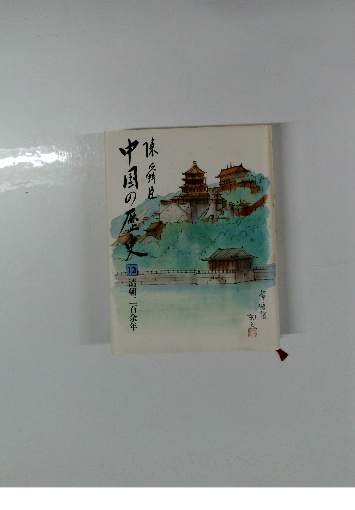 陳舜臣
中国の歴史
12
清朝二百余年